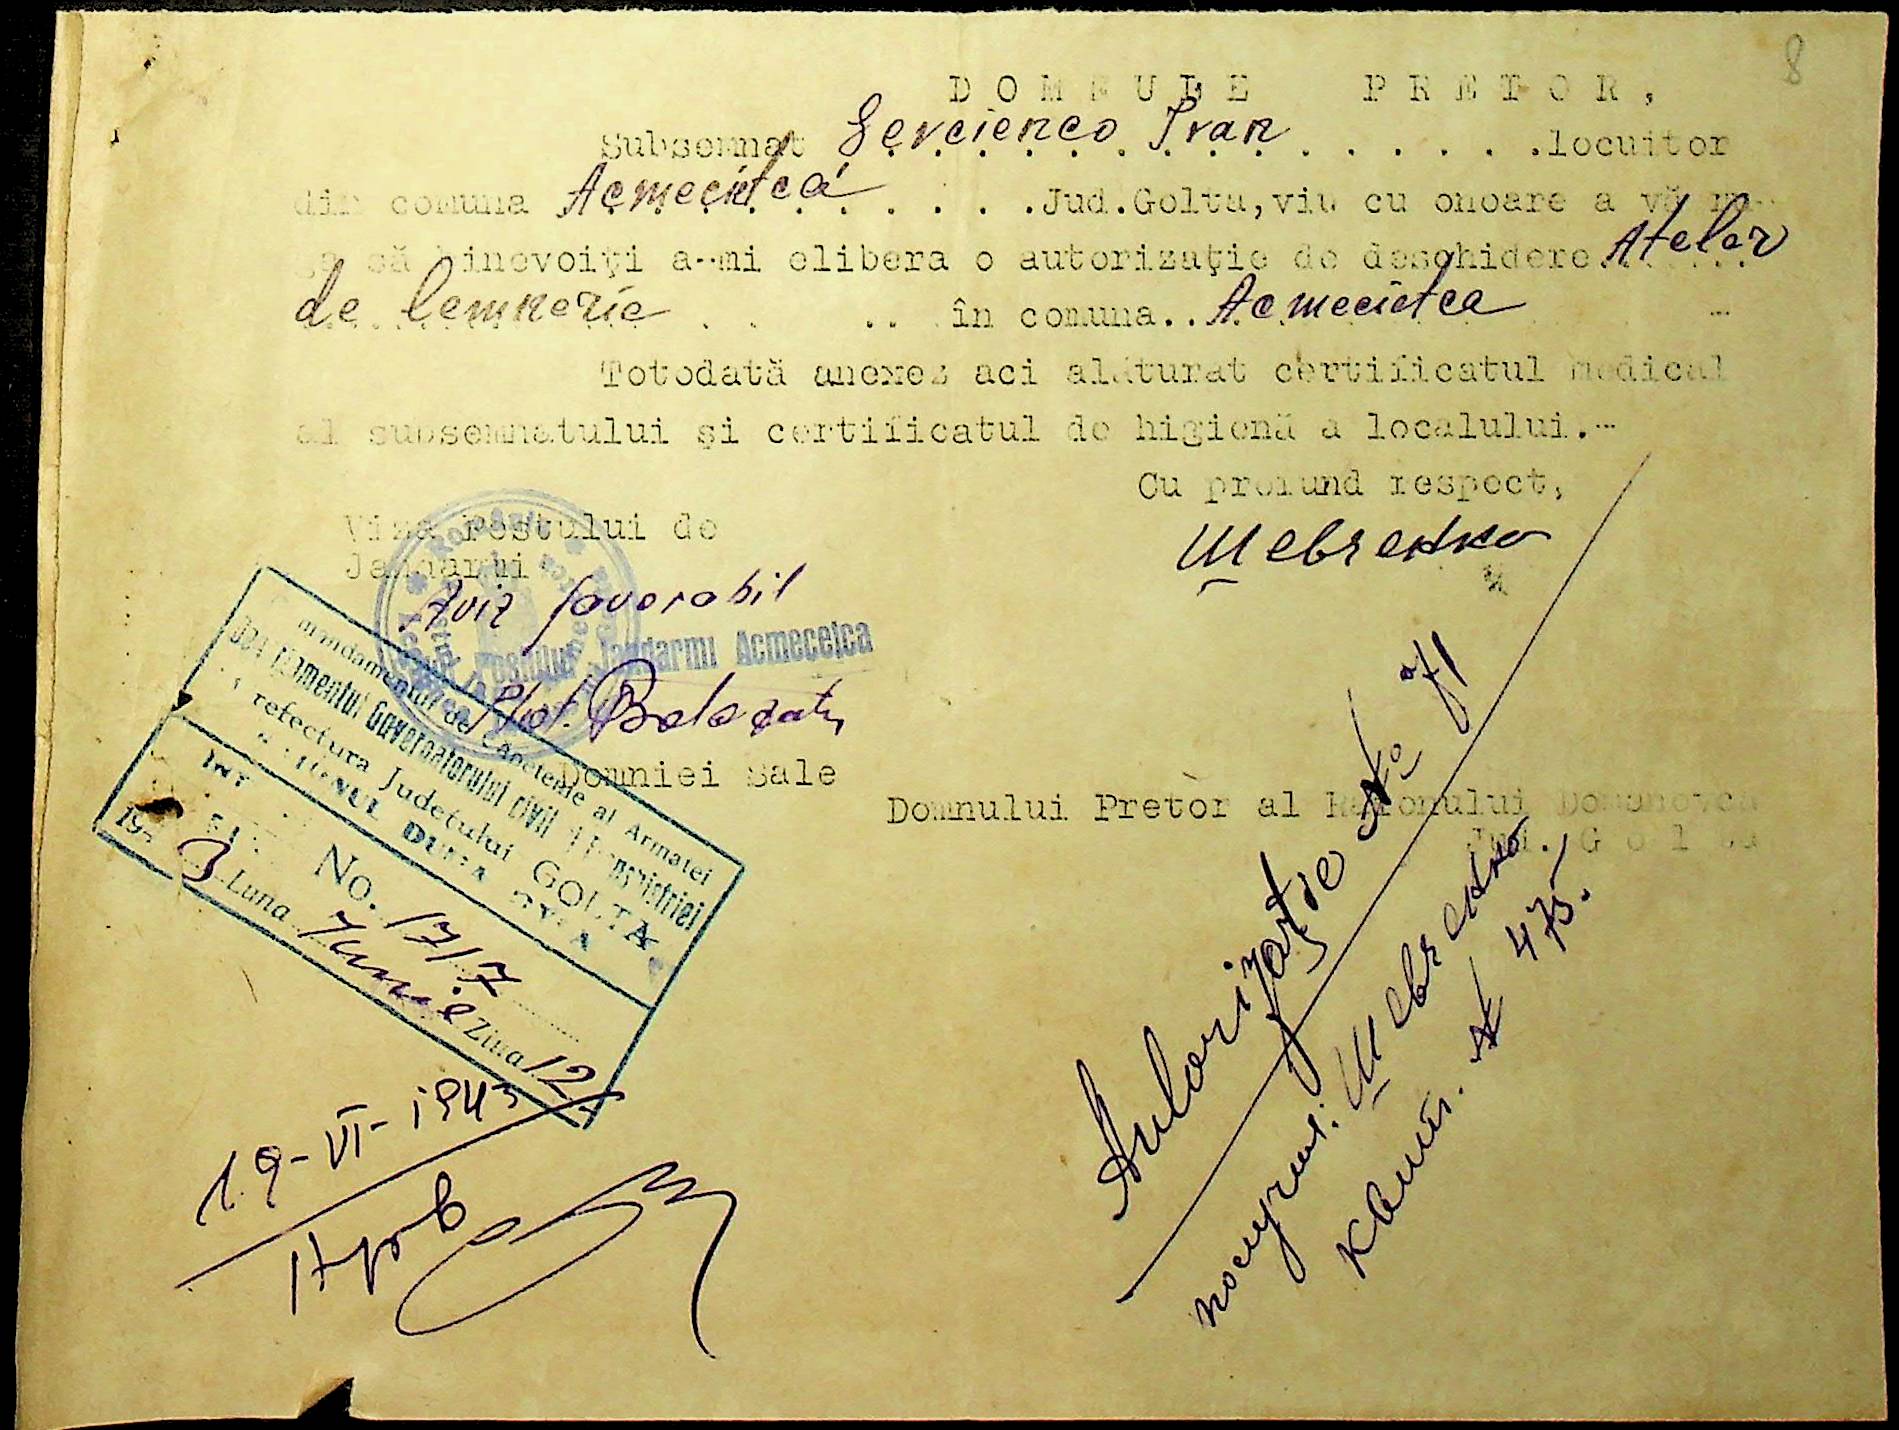 8
DOMNULE PRETOR,
Subsemnat Șevcienco Ivan locuitor
din comuna Acmecietca Jud.Golta, viu cu onoare a vă
să binevoiți a-mi elibera o autorizație de deschidere Atelier
de lemnerie în comuna Acmecietca
Totodată anexez aci alăturat certificatul medical
al subsemnatului și certificatul de higienă a localului.-
Cu profund respect,
Шевченко
Viza Postului de
Jandarmi
Aviz favorabil
Postului Jandarmi Acmecetca
Plot.
Domniei Sale
Domnului Pretor al Raionului Domanovca
Jud. Golta
Comandamentul de Căpetenie al Armatei
Guvernatorului civil Transnistriei
Prefectura Județului GOLTA
No. 1717
1943 Luna Iunie Ziua 12
19-VI-1943
Autorizație No 71
получил: Шевченко
квит. № 475.